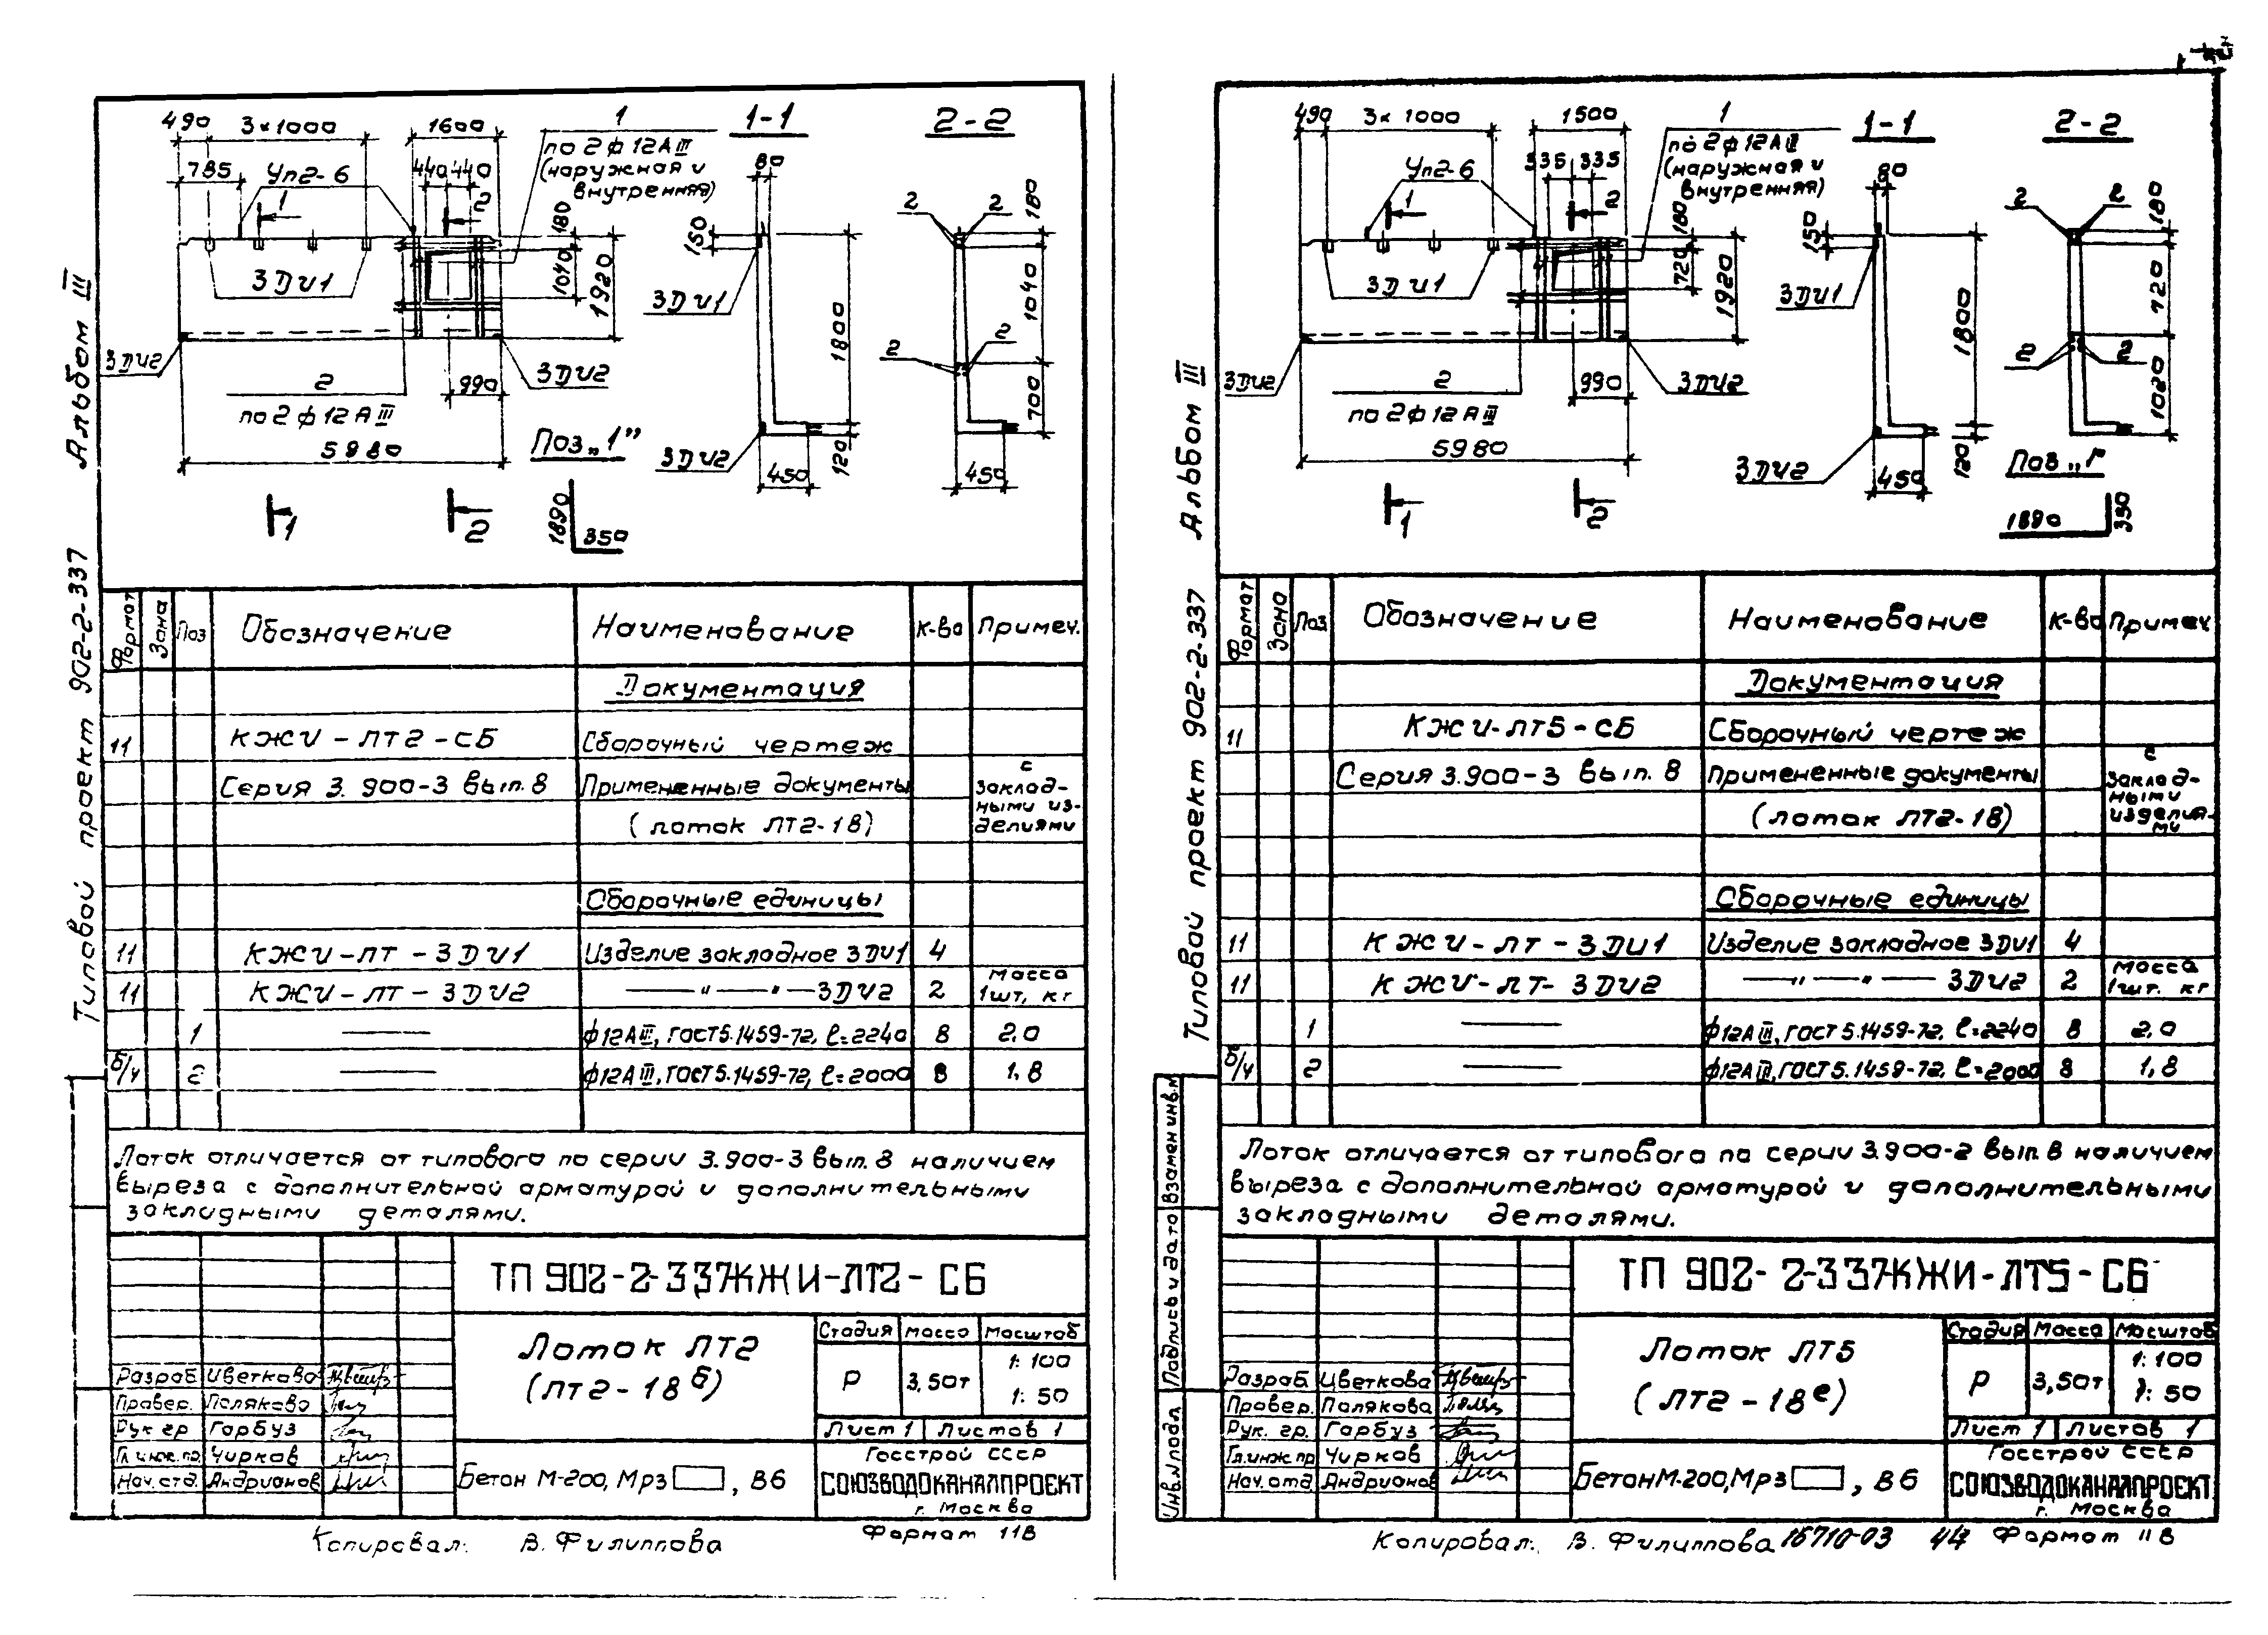 Типовой проект 902-2-337 Альбом III
490 3×1000 1600
785 Уп2-6 440 440
1
по 2ф12АIII
(наружная и
внутренняя)
1 2
180
1040
1920
3ДИ1
3ДИ2
2
по 2ф12АIII
990
3ДИ2
5980
Поз„1”
1890
350
1 2
1-1
80
150
3ДИ1
1800
120
3ДИ2
450
2-2
2 2
180
1040
2 2
700
450
Формат Зона Поз Обозначение Наименование К-во Примеч.
Документация
11 КЖИ-ЛТ2-СБ Сборочный чертеж
Серия 3.900-3 вып.8 Примененные документы с заклад-
(лоток ЛТ2-18) ными из-
делиями
Сборочные единицы
11 КЖИ-ЛТ-3ДИ1 Изделие закладное 3ДИ1 4
11 КЖИ-ЛТ-3ДИ2 —„—„—3ДИ2 2 масса 1шт, кг
1 —— ф12АIII, ГОСТ 5.1459-72, ℓ=2240 8 2,0
б/ч 2 —— ф12АIII, ГОСТ 5.1459-72, ℓ=2000 8 1,8
Лоток отличается от типового по серии 3.900-3 вып.8 наличием
выреза с дополнительной арматурой и дополнительными
закладными деталями.
ТП 902-2-337КЖИ-ЛТ2-СБ
Лоток ЛТ2
(ЛТ2-18б)
Стадия Масса Масштаб
Р 3,50т 1:100
1:50
Лист 1 Листов 1
Разраб Цветкова
Провер. Полякова
Рук гр Горбуз
Гл.инж.пр. Чирков
Нач.отд. Андрианов
Бетон М-200, Мрз , В6
Госстрой СССР
СОЮЗВОДОКАНАЛПРОЕКТ
г. Москва
Копировал: В. Филиппова
Формат 11В
Типовой проект 902-2-337 Альбом III
490 3×1000 1500
Уп2-6 335 335
1
по 2ф12АIII
(наружная и
внутренняя)
1 2
180
720
1920
3ДИ1
3ДИ2
2
по 2ф12АIII
990
3ДИ2
5980
1 2
1-1
80
150
3ДИ1
1800
120
3ДИ2
450
2-2
2 2
180
720
2 2
1020
Поз „1”
1890
350
Формат Зона Поз Обозначение Наименование К-во Примеч
Документация
11 КЖИ-ЛТ5-СБ Сборочный чертеж
Серия 3.900-3 вып. 8 Примененные документы с заклад-
(лоток ЛТ2-18) ными
изделия-
ми
Сборочные единицы
11 КЖИ-ЛТ-3ДИ1 Изделие закладное 3ДИ1 4
11 КЖИ-ЛТ-3ДИ2 —„—„— 3ДИ2 2 масса 1шт. кг
1 —— ф12АIII, ГОСТ 5.1459-72, ℓ=2240 8 2,0
б/ч 2 —— ф12АIII, ГОСТ 5.1459-72, ℓ=2000 8 1,8
Лоток отличается от типового по серии 3.900-2 вып.8 наличием
выреза с дополнительной арматурой и дополнительными
закладными деталями.
Инв.N подл. Подпись и дата Взамен инв.N
ТП 902-2-337КЖИ-ЛТ5-СБ
Лоток ЛТ5
(ЛТ2-18е)
Стадия Масса Масштаб
Р 3,50т 1:100
1:50
Лист 1 Листов 1
Разраб. Цветкова
Провер. Полякова
Рук. гр. Горбуз
Гл.инж.пр Чирков
Нач.отд Андрианов
Бетон М-200, Мрз , В6
Госстрой СССР
СОЮЗВОДОКАНАЛПРОЕКТ
г. Москва
Копировал: В. Филиппова 15710-03 44 Формат 11В